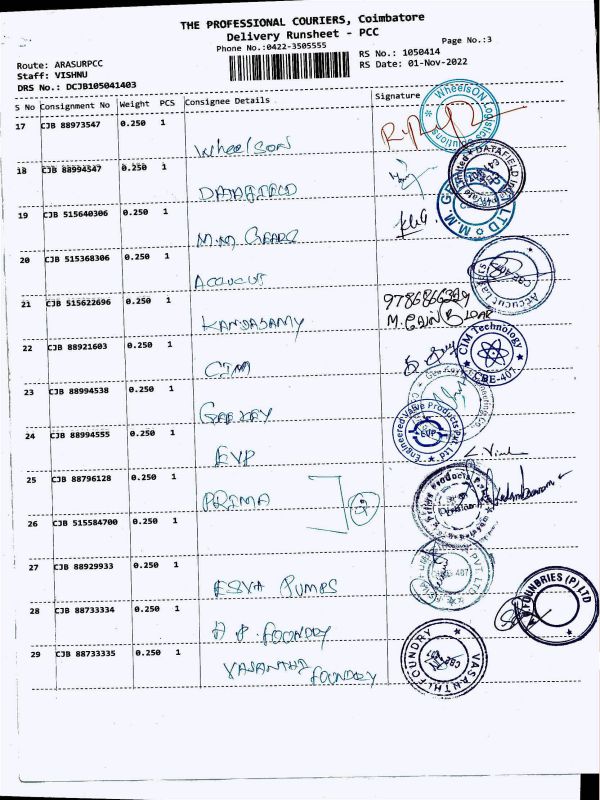 THE PROFESSIONAL COURIERS, Coimbatore
Delivery Runsheet - PCC
Phone No.:0422-3505555
Page No.:3
Route: ARASURPCC
Staff: VISHNU
DRS No.: DCJB105041403
RS No.: 1050414
RS Date: 01-Nov-2022
S No Consignment No Weight PCS Consignee Details Signature
17 CJB 88973547 0.250 1 WheelSON
18 CJB 88994547 0.250 1 DATAFIELD
19 CJB 515640306 0.250 1 M.M GEARS
20 CJB 515368306 0.250 1 Accucut
21 CJB 515622696 0.250 1 KANDASAMY
22 CJB 88921603 0.250 1 CIM
23 CJB 88994538 0.250 1
24 CJB 88994555 0.250 1 EVP
25 CJB 88796128 0.250 1 PRIMA
26 CJB 515584700 0.250 1
27 CJB 88929933 0.250 1 ESVA PUMPS
28 CJB 88733334 0.250 1 A P. FOUNDRY
29 CJB 88733335 0.250 1 VASANTHI FOUNDRY
WheelsON Logistics Solutions
DATAFIELD India Private Limited
M.M GE LTD
Accucut
CBE-407
CIM Technology
CBE-407
Engineered Valve Products (Pvt) Ltd
EVP
PVT LTD
407
FOUNDRIES (P) LTD
VASANTHI FOUNDRY
CBE